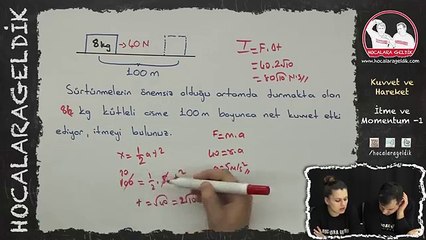 HOCALARAGELDİK
8kg
→40N
100m
I=F.Δt
=40.2√10
=80√10 N.s//
Sürtünmelerin önemsiz olduğu ortamda durmakta olan
8 kg kütleli cisme 100m boyunca net kuvvet etki
ediyor, itmeyi bulunuz.
F=m.a
x=½at²
t=√40=2√10
HOCALARA GELDİK
www.hocalarageldik.com
Kuvvet ve
Hareket
İtme ve
Momentum -1
/hocalarageldik